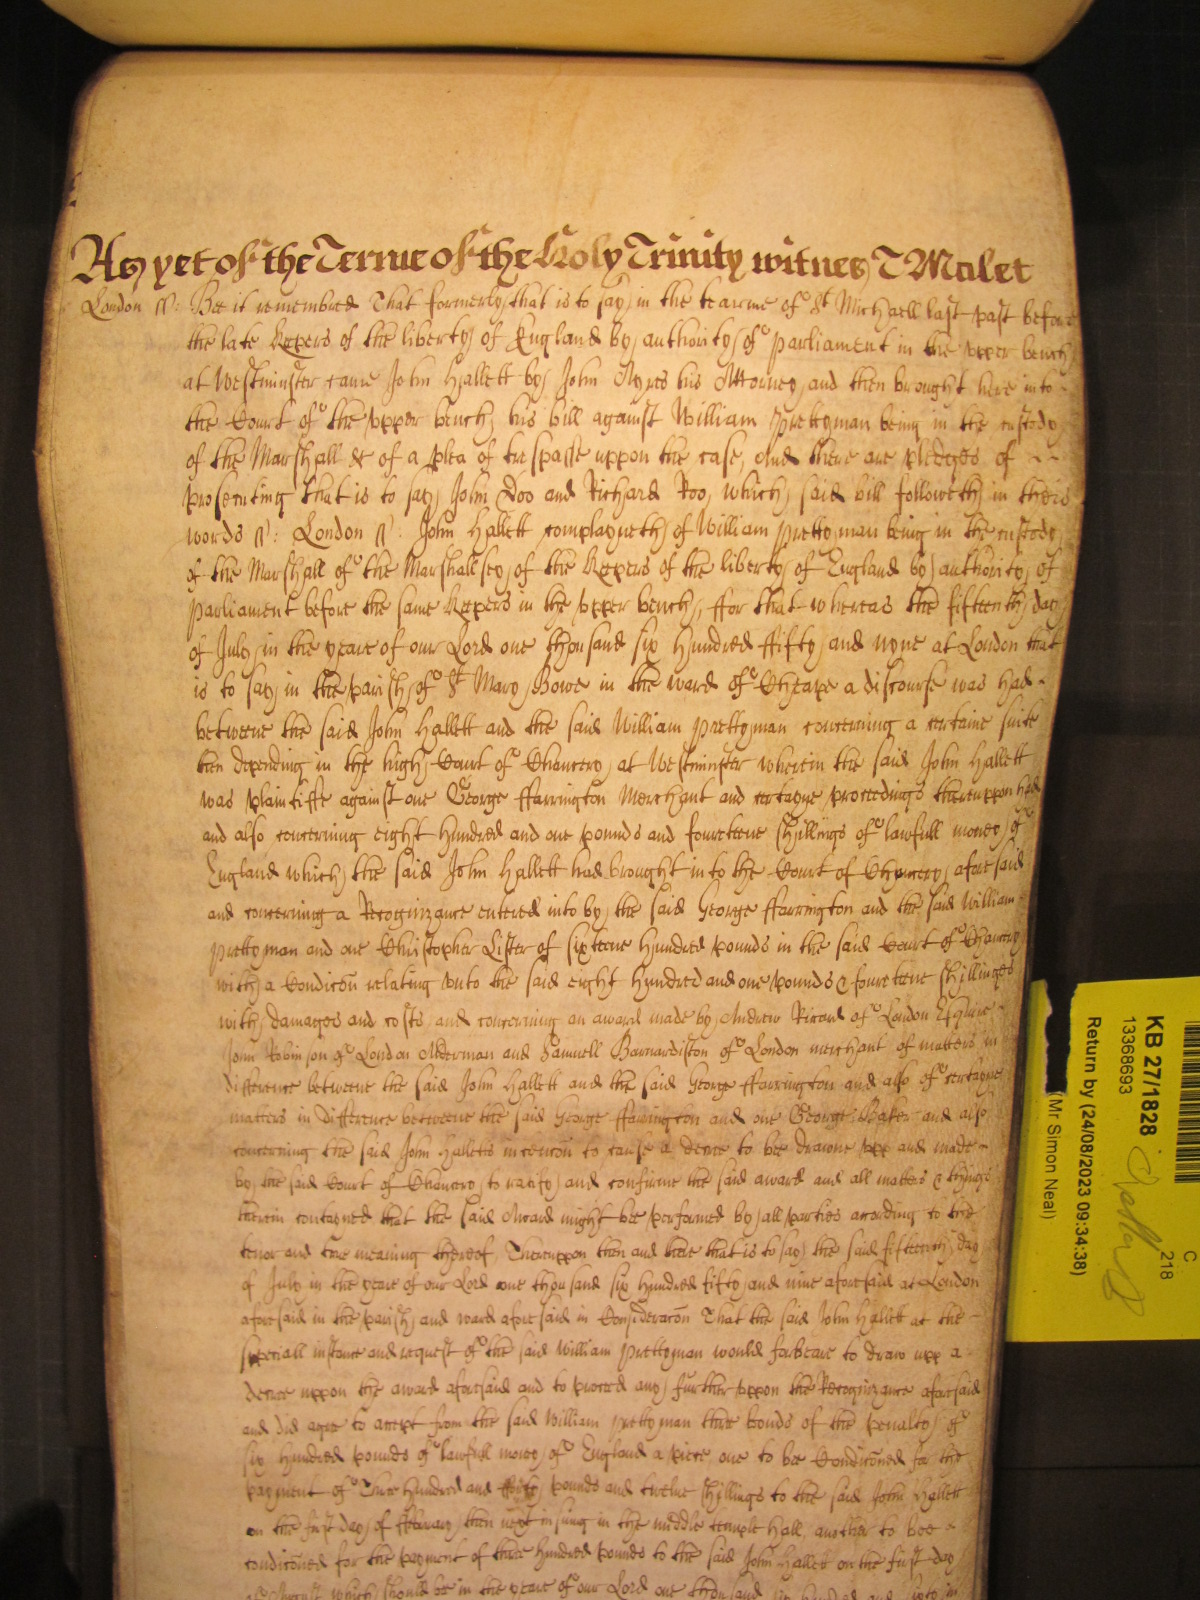 As yet of the Terme of the Holy Trinity witnes T Malet
London ss: Bee it remembred That formerly that is to say in the tearme of St Michaell last past before
the late Keepers of the liberty of England by authority of Parliament in the vpper bench
at Westminster came John Hallett by John Ayres his Attorney and then brought here into
the Court of the vpper bench his bill against William Prettyman being in the custody
of the Marshall &c of a plea of trespasse vppon the case, And there are pledges of
prosecuting that is to say John Doo and Richard Roo, which said bill followeth in theis
words ss: London ss: John Hallett complayneth of William Prettyman being in the custody
of the Marshall of the Marshallsey of the Keepers of the liberty of England by authority of
Parliament before the same Keepers in the vpper bench, ffor that whereas the fifteenth day
of July in the yeare of our Lord one thousand six hundred ffifty and nyne at London that
is to say in the parish of St Mary Bowe in the ward of Cheape a discourse was had
betweene the said John Hallett and the said William Prettyman concerning a certaine suite
then depending in the high Court of Chancery at Westminster wherein the said John Hallett
was plaintiffe against one George ffarrington Merchant and certayne proceedings therevppon had
and also concerning eight hundred and one pounds and fourteene shillings of lawfull money of
England which the said John Hallett had brought into the Court of Chancery aforesaid
and concerning a Recognizance entered into by the said George ffarrington and the said William
Prettyman and one Christopher Lister of sixteene hundred pounds in the said Court of Chancery
with a Condicõn relating vnto the said eight hundred and one pounds & fourteene shillings
with damages and costs, and concerning an award made by Andrew Ricard of London Esquire
John Robinson of London Alderman and Samuell Barnardiston of London merchant of matters in
difference betweene the said John Hallett and the said George ffarrington and also of certayne
matters in difference betweene the said George ffarrington and one George Baker and also
concerning the said John Halletts intencõn to cause a decree to bee drawne vpp and made
by the said Court of Chancery to ratify and confirme the said award and all matters & things
therein contayned that the said Award might bee performed by all parties according to the
tenor and true meaning thereof, Therevppon then and there that is to say the said fifteenth day
of July in the yeare of our Lord one thousand six hundred fifty and nine aforesaid at London
aforesaid in the parish and ward aforesaid in Consideracõn That the said John Hallett at the
speciall instance and request of the said William Prettyman would forbeare to draw vpp a
decree vppon the award aforesaid and to proceed any further vppon the Recognizance aforesaid
and did agree to accept from the said William Prettyman three bonds of the penalty of
six hundred pounds of lawfull money of England a piece one to bee Condicõned for the
payment of Three hundred and pounds and twelve shillings to the said John Hallett
on the first day of ffebruary then next insuing in the middle temple Hall, another to bee
condicõned for the payment of three hundred pounds to the said John Hallett on the first day
of August which should be in the yeare of our Lord one thousand six hundred and sixty in
C
218
KB 27/1828
13368693
Return by (24/08/2023 09:34:38)
(Mr Simon Neal)